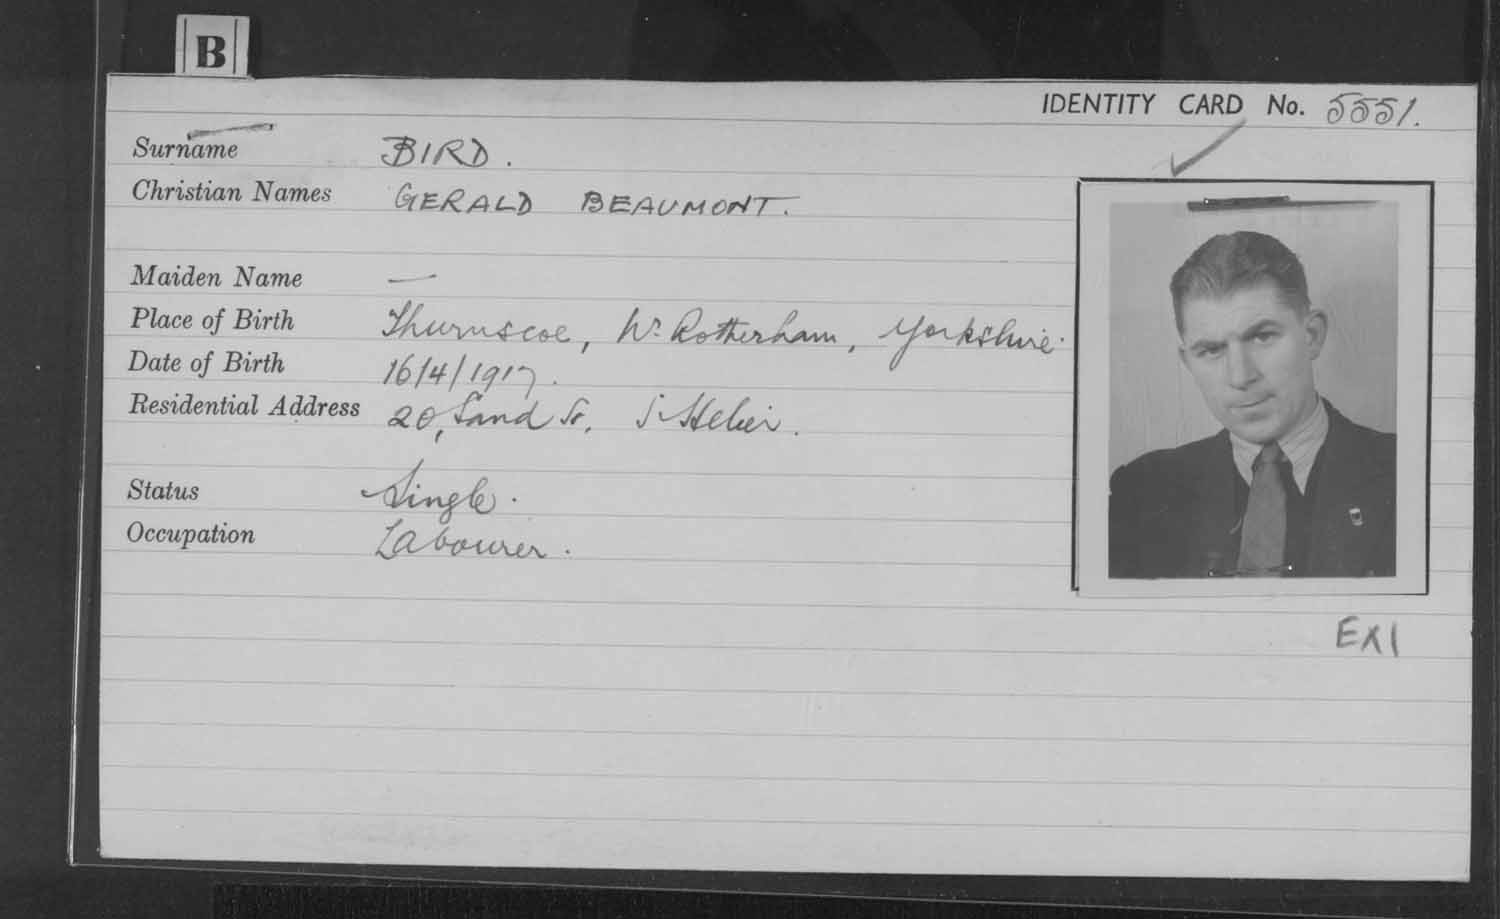 B
IDENTITY CARD No. 5551.
Surname BIRD.
Christian Names GERALD BEAUMONT.
Maiden Name —
Place of Birth Thurnscoe, Nr. Rotherham, Yorkshire.
Date of Birth 16/4/1917.
Residential Address 20, Sand St. St Helier.
Status Single.
Occupation Labourer.
EX1